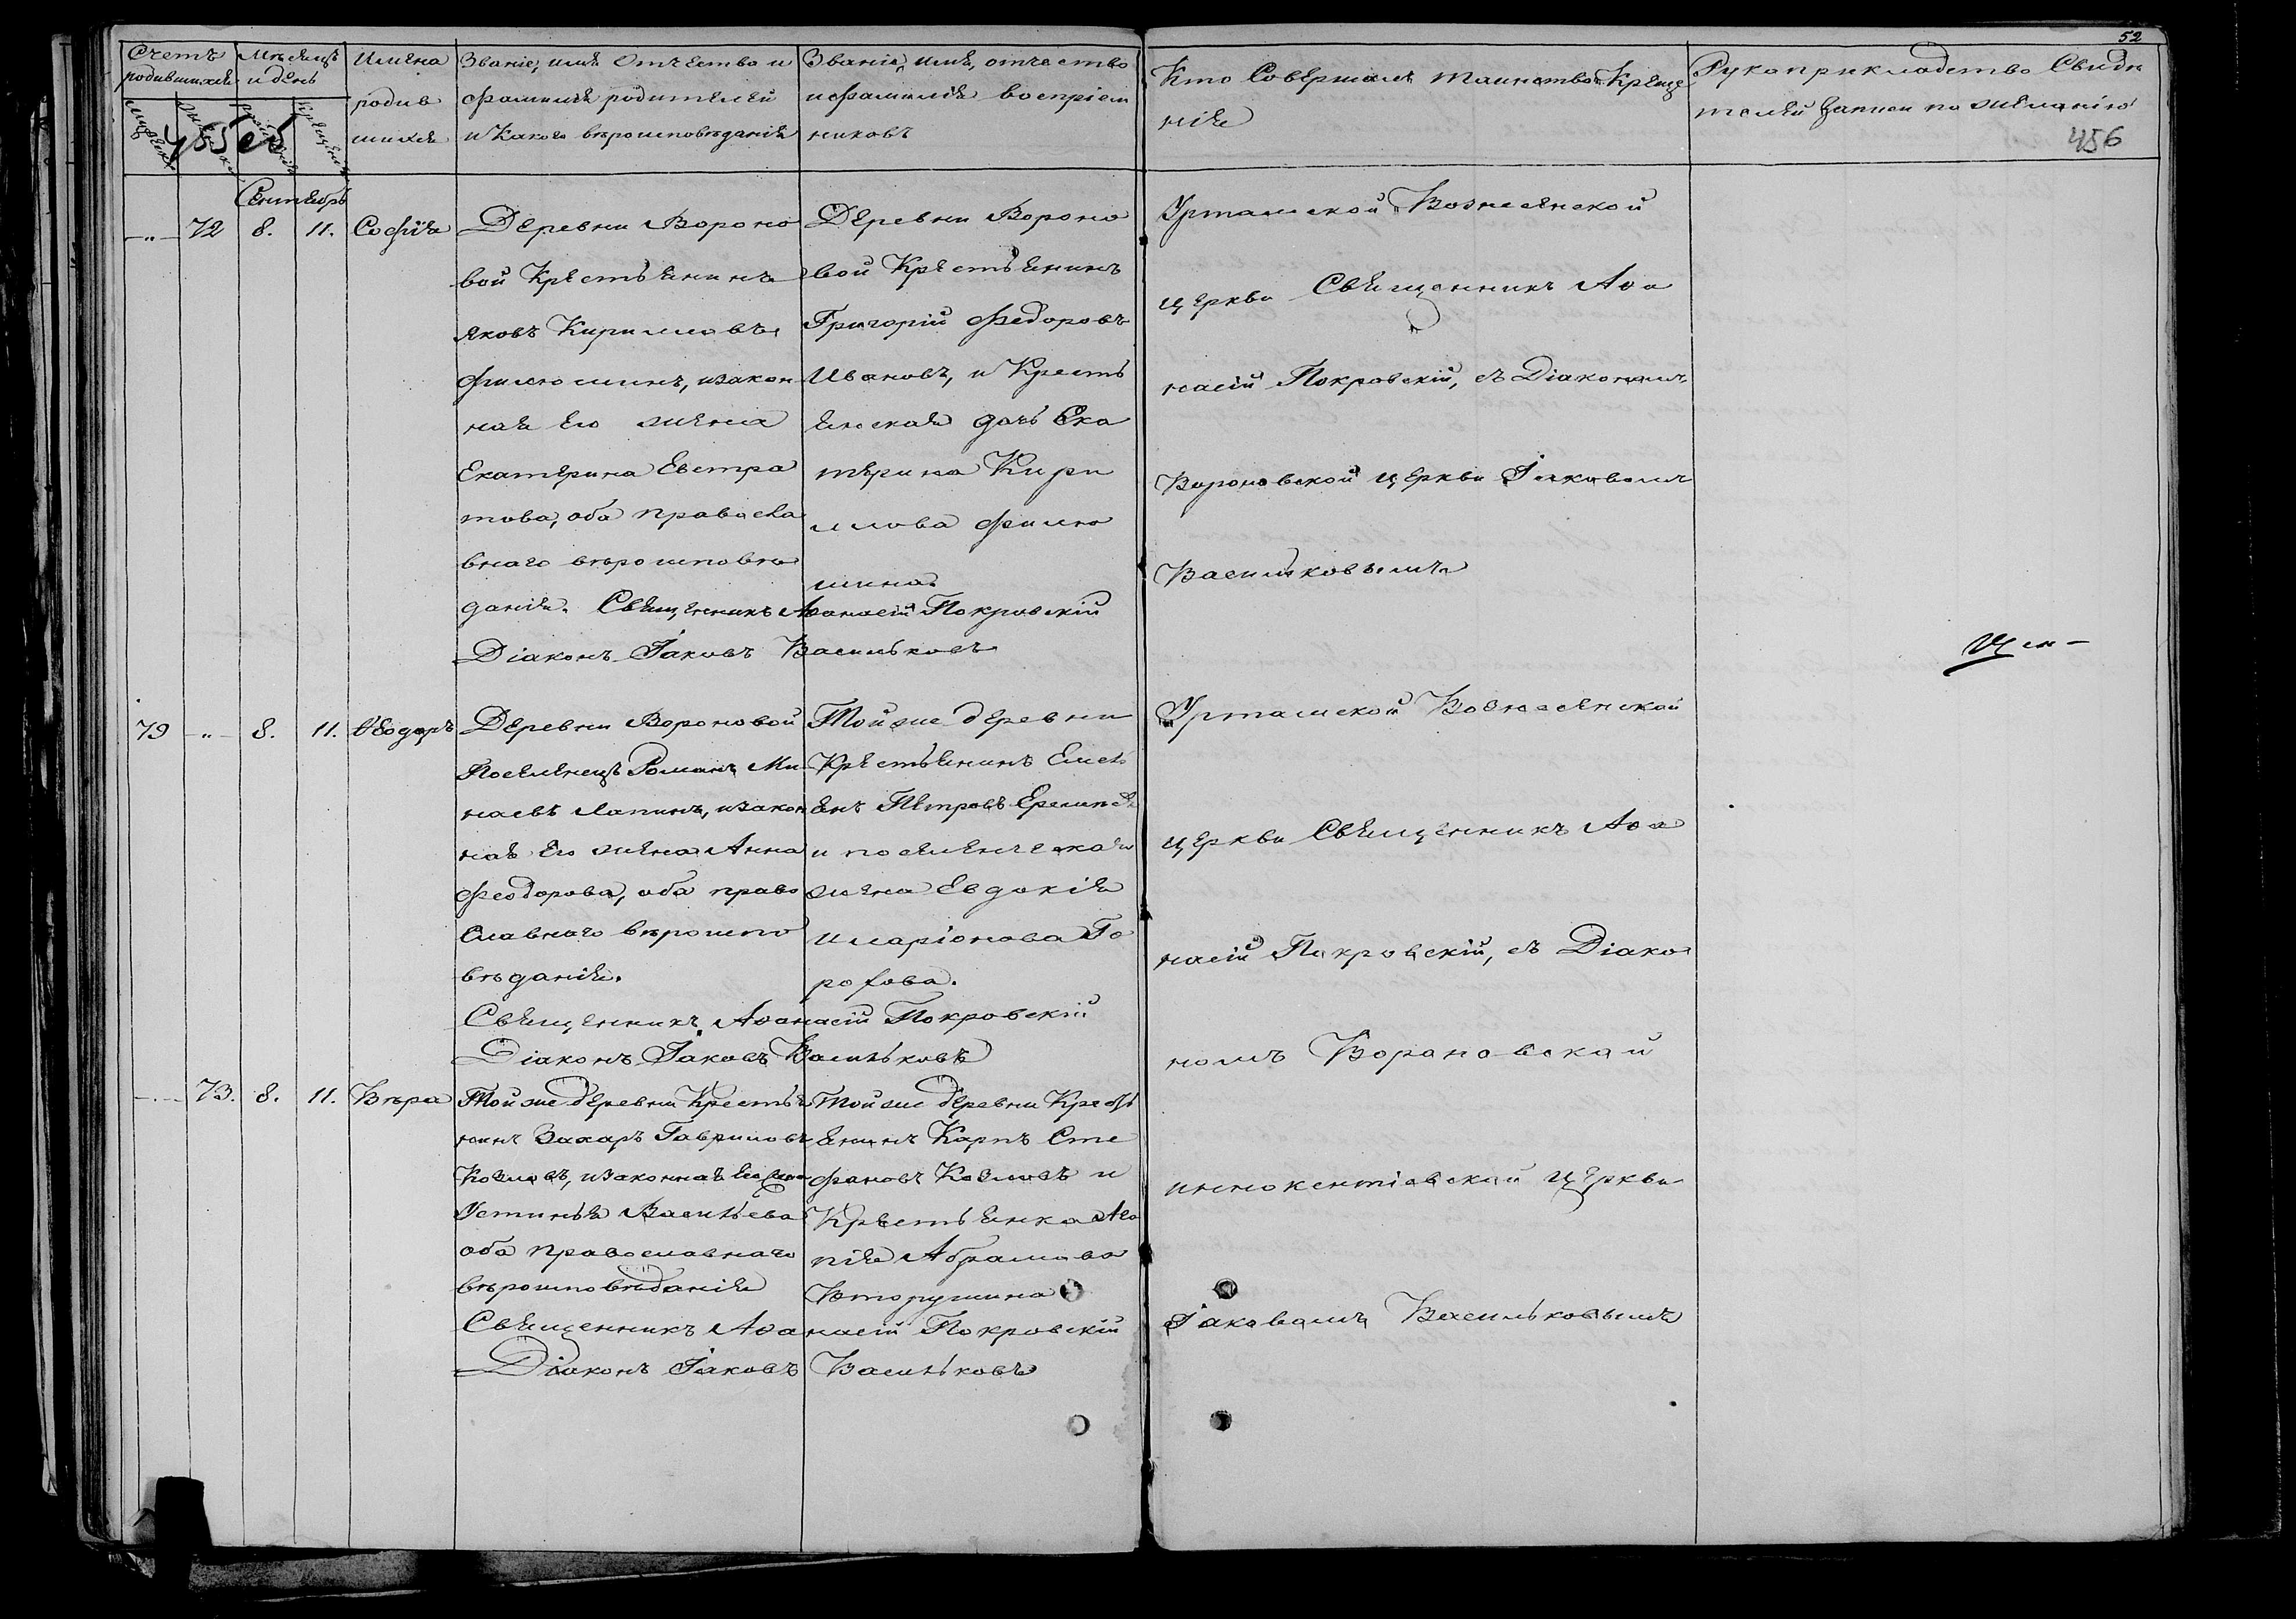 52
Счетъ
родившихся
Мѣсяцъ
и день
Имена
родив
шихся
Званіе, имя Отчество и
фамилія родителей
и Какого вѣроисповѣданія
Званіе, имя, отчество
и фамилія воспріем
никовъ
Кто Совершалъ таинство Креще
нія
Рукоприкладство Свидѣ
телей записи по желанію
455 об
456
Сентябрь
—„— 72 8. 11. Софія
Деревни Вороно
вой Крестьянинъ
Яковъ Кирилловъ
Филюшинъ, и закон
ная его жена
Екатерина Евстра
това, оба правосла
внаго вѣроисповѣ
данія. Священникъ Аѳанасій Покровскій
Діаконъ Іаковъ Васильковъ
Деревни Вороно
вой Крестьянинъ
Григорій Федоровъ
Ивановъ, и Кресть
янская дочь Ека
терина Кири
ллова Филю
шина.
Урташской Вознесенской
церкви Священникъ Аѳа
насій Покровскій, съ Діакономъ
Вороновской церкви Іаковомъ
Васильковымъ
79 —„— 8. 11. Ѳеодоръ
Деревни Вороновой
Поселенецъ Романъ Ми
наевъ Лапинъ, и закон
ная его жена Анна
Феодорова, оба право
славнаго вѣроиспо
вѣданія.
Священникъ Аѳанасій Покровскій
Діаконъ Іаковъ Васильковъ
Той же деревни
Крестьянинъ Емель
янъ Петровъ
и поселенческая
жена Евдокія
Иларіонова Го
рохова.
Урташской Вознесенской
церкви Священникъ Аѳа
насій Покровскій, съ Діако
номъ Вороновской
иннокентіевской церкви
Іаковомъ Васильковымъ
—„— 73. 8. 11. Вѣра
Той же деревни Крестья
нинъ Захаръ Гавриловъ
Козловъ, и законная его жена
Устинья Васильева
оба православнаго
вѣроисповѣданія
Священникъ Аѳанасій Покровскій
Діаконъ Іаковъ Васильковъ
Той же деревни Кресть
янинъ Карпъ Сте
фановъ Козловъ и
Крестьянка Ага
пія Абрамова
Вторушина